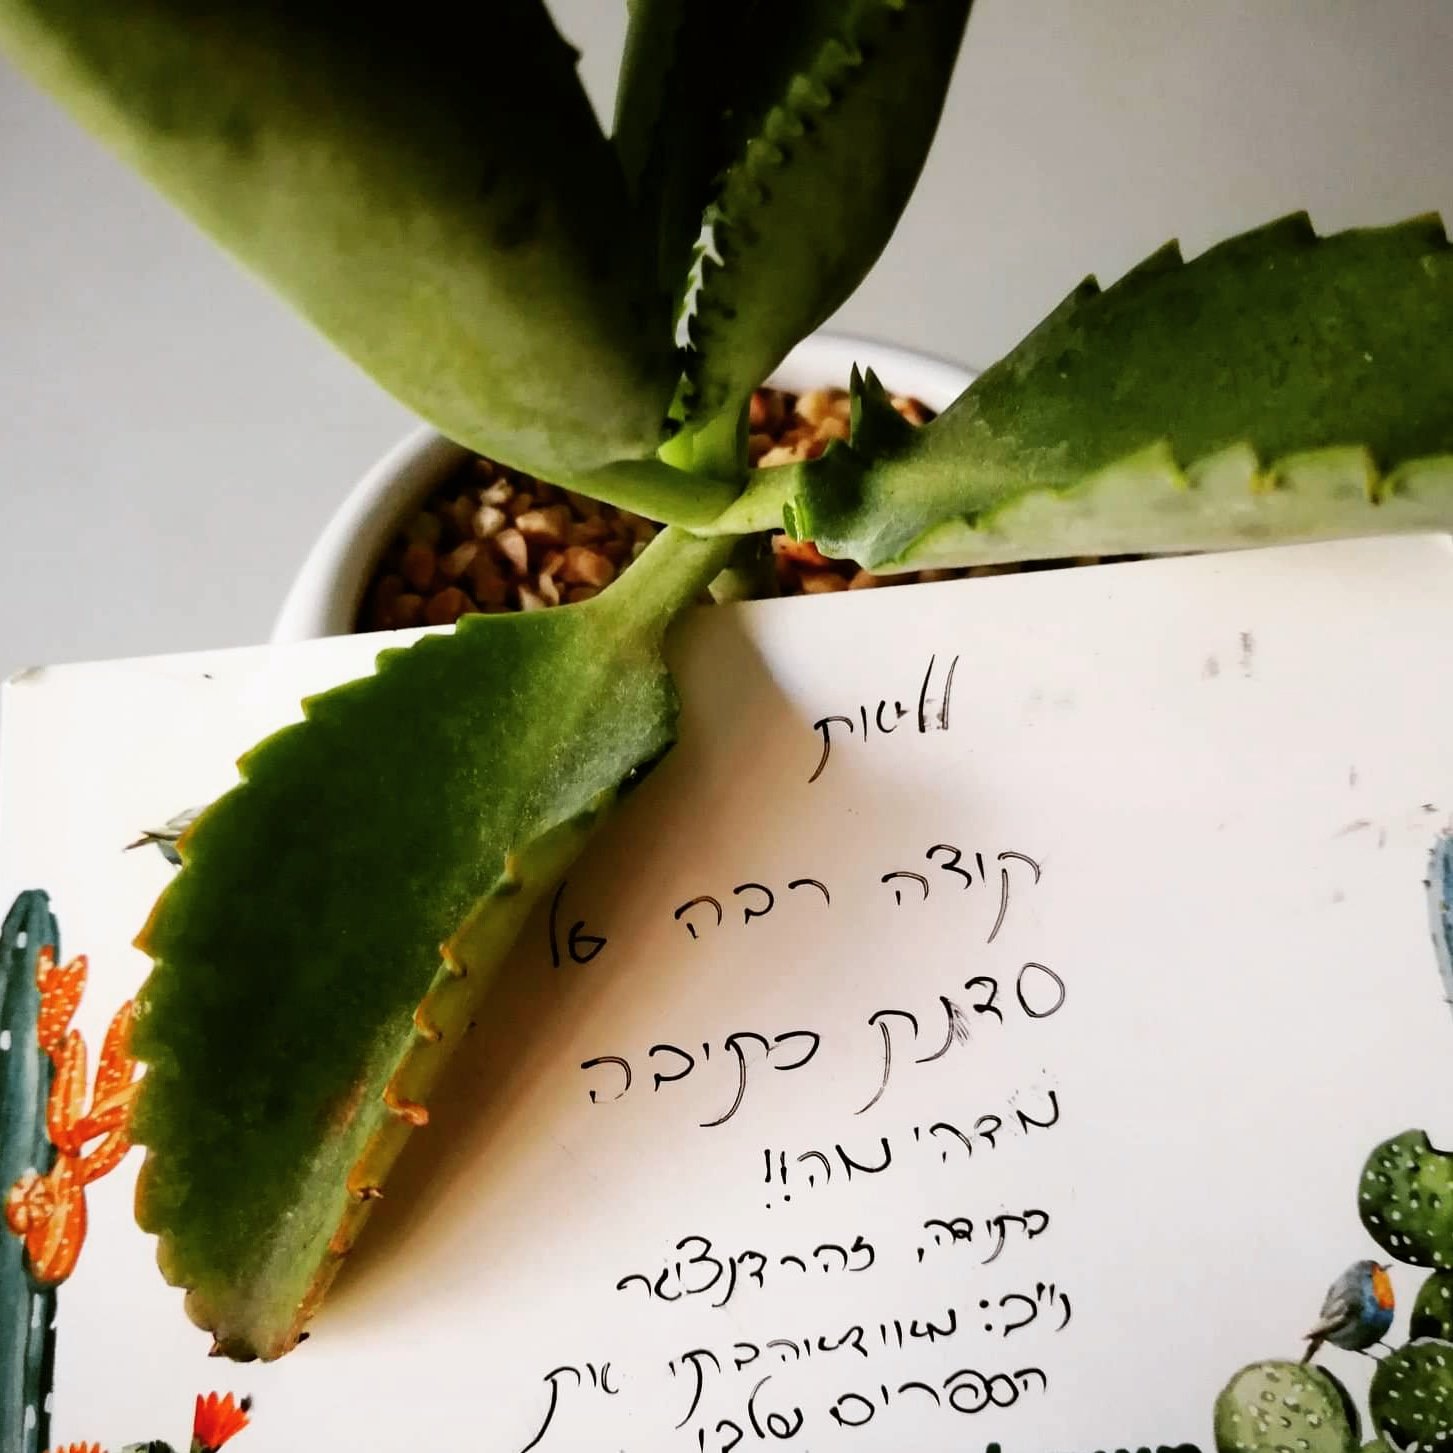 לליאת
תודה רבה על
סדנת כתיבה
מדהימה!!
בתודה, זהר דנציגר
נ"ב: מאוד אהבתי את
הספרים שלכי